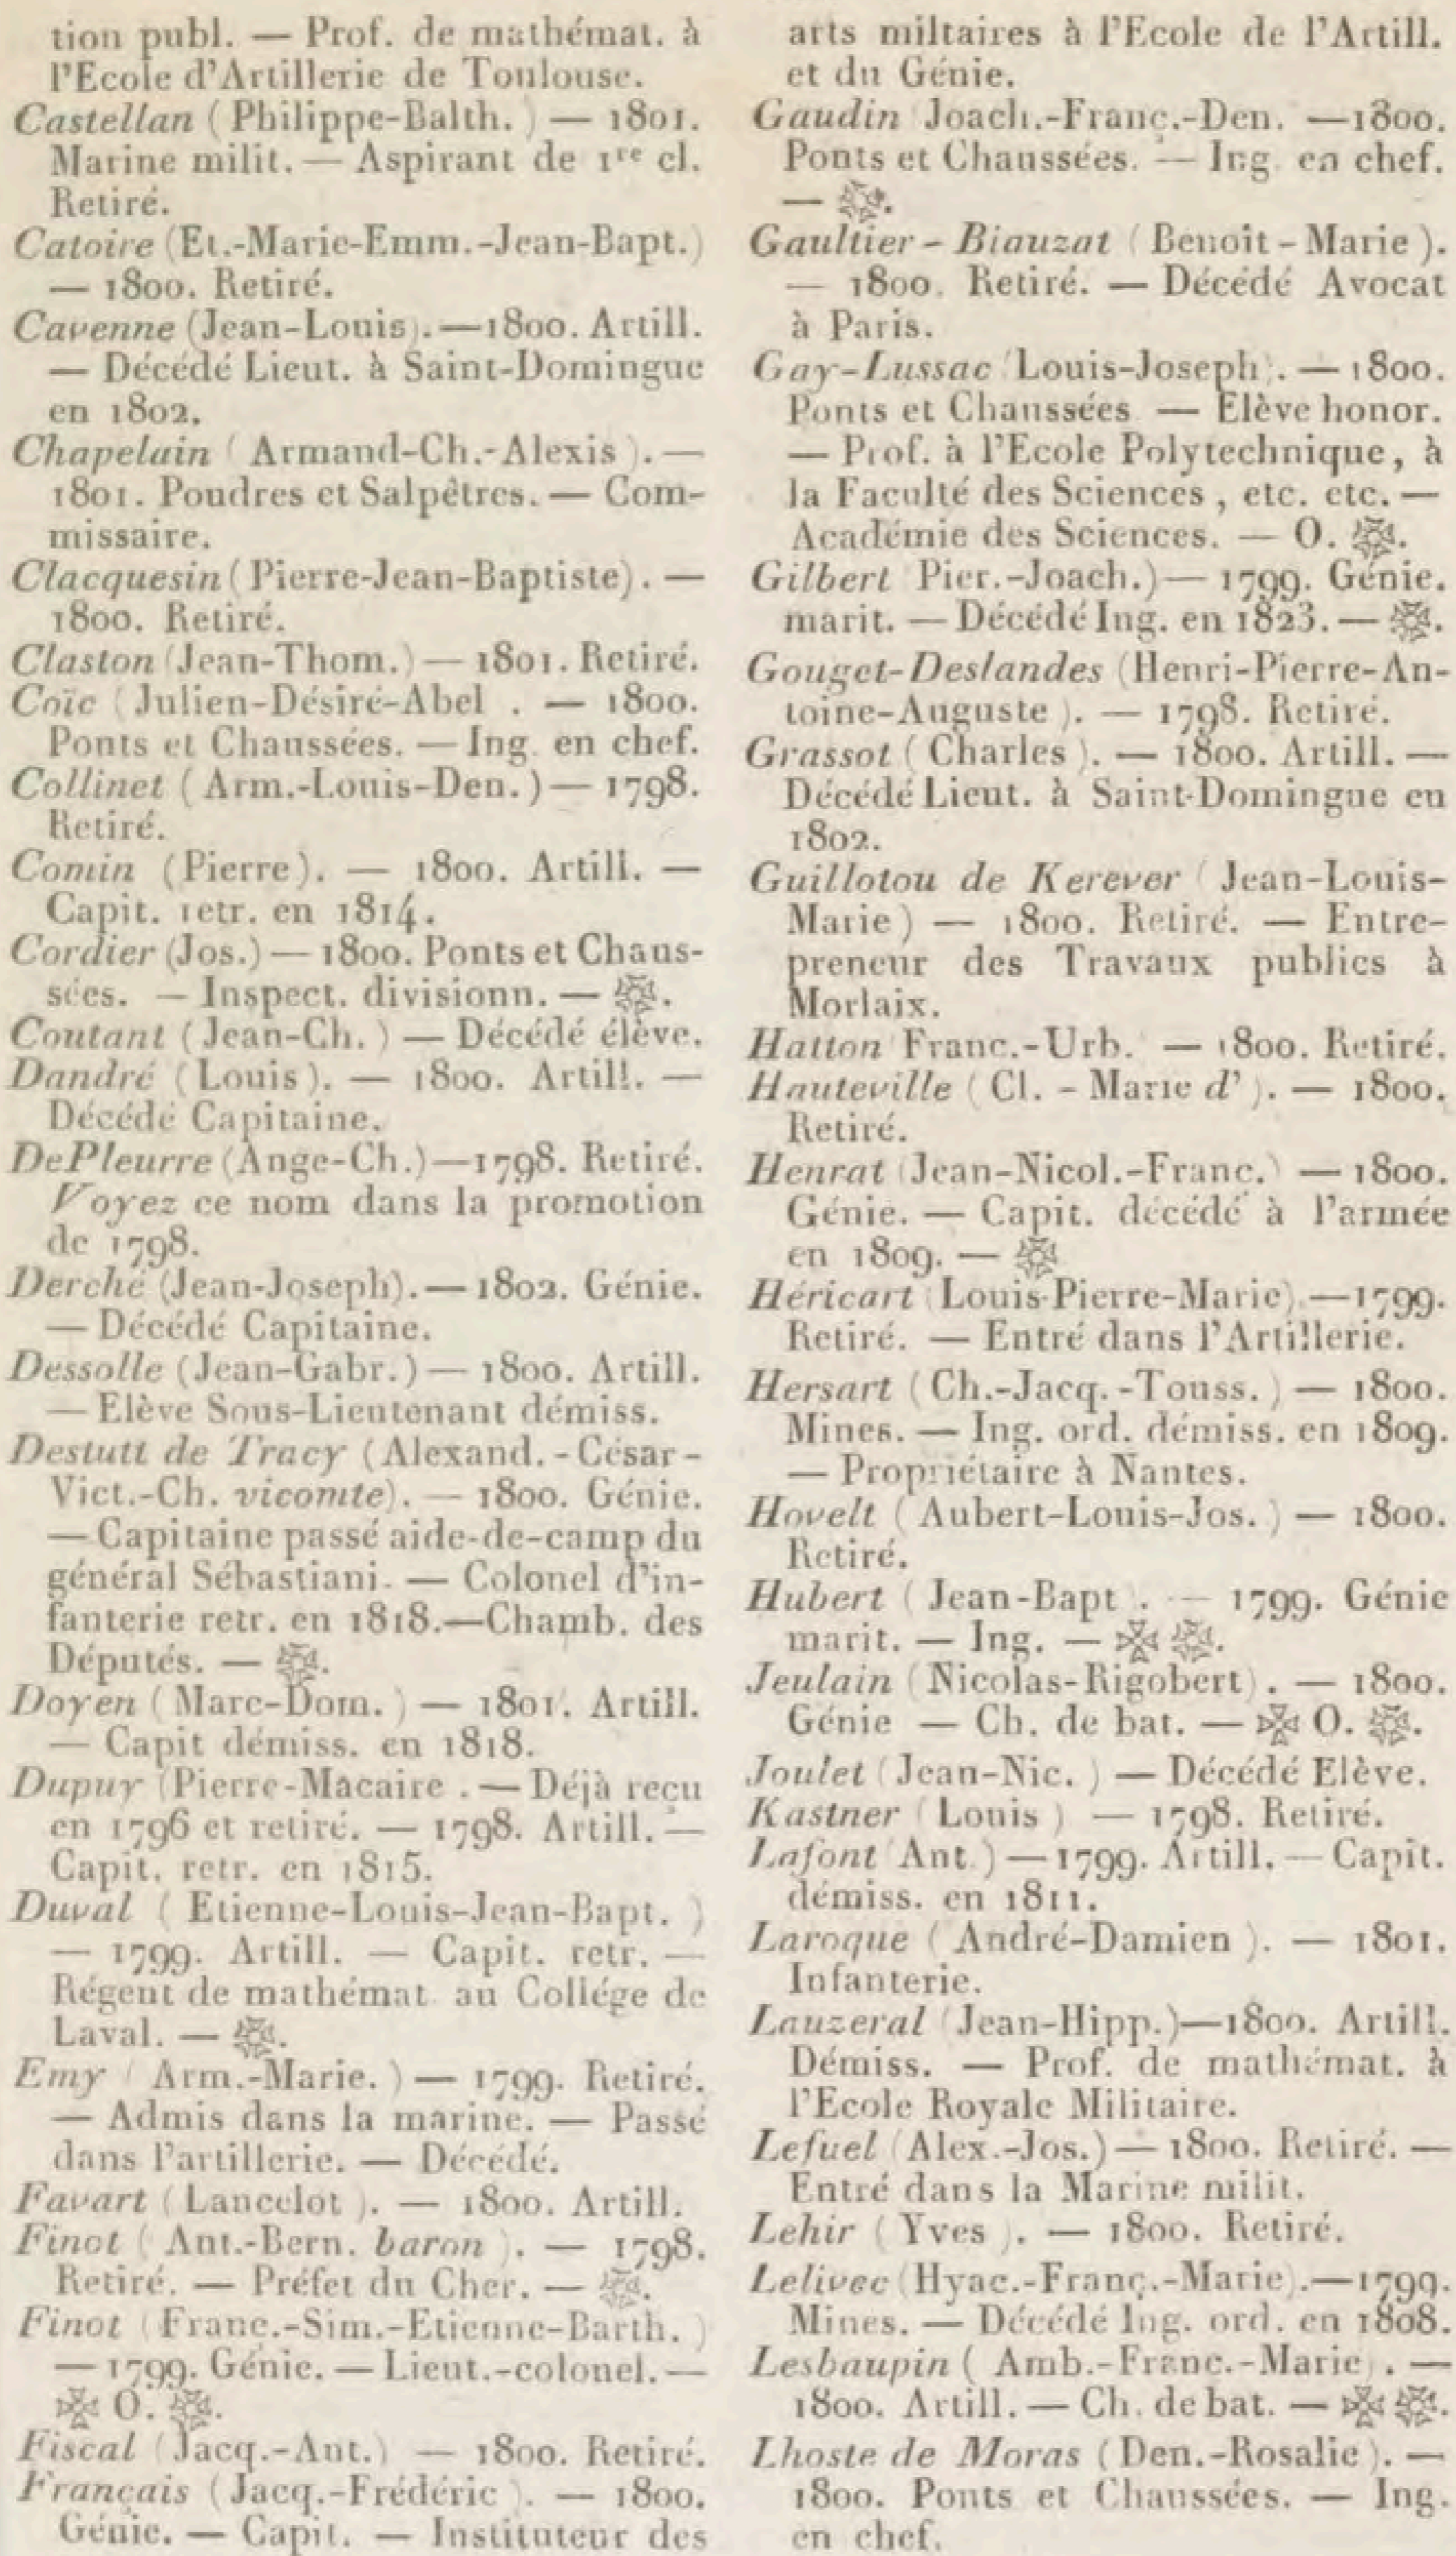 tion publ. — Prof. de mathémat. à
l'Ecole d'Artillerie de Toulouse.
Castellan ( Philippe-Balth. ) — 1801.
Marine milit. — Aspirant de 1re cl.
Retiré.
Catoire (Et.-Marie-Emm.-Jean-Bapt.)
— 1800. Retiré.
Cavenne (Jean-Louis).—1800. Artill.
— Décédé Lieut. à Saint-Domingue
en 1802.
Chapelain ( Armand-Ch.-Alexis ). —
1801. Poudres et Salpêtres. — Com-
missaire.
Clacquesin ( Pierre-Jean-Baptiste). —
1800. Retiré.
Claston (Jean-Thom.) — 1801. Retiré.
Coïc ( Julien-Désiré-Abel . — 1800.
Ponts et Chaussées. — Ing. en chef.
Collinet ( Arm.-Louis-Den. ) — 1798.
Retiré.
Comin (Pierre). — 1800. Artill. —
Capit. retr. en 1814.
Cordier (Jos.) — 1800. Ponts et Chaus-
sées. — Inspect. divisionn. — ❂.
Coutant ( Jean-Ch. ) — Décédé élève.
Dandré ( Louis ). — 1800. Artill. —
Décédé Capitaine.
DePleurre (Ange-Ch.)—1798. Retiré.
Voyez ce nom dans la promotion
de 1798.
Derché (Jean-Joseph). — 1802. Génie.
— Décédé Capitaine.
Dessolle (Jean-Gabr. ) — 1800. Artill.
— Elève Sous-Lieutenant démiss.
Destutt de Tracy ( Alexand. - César -
Vict.-Ch. vicomte). — 1800. Génie.
— Capitaine passé aide-de-camp du
général Sébastiani. — Colonel d'in-
fanterie retr. en 1818.—Chamb. des
Députés. — ❂.
Doyen ( Marc-Dom. ) — 1801. Artill.
— Capit démiss. en 1818.
Dupuy (Pierre-Macaire . — Déjà reçu
en 1796 et retiré. — 1798. Artill. —
Capit. retr. en 1815.
Duval ( Etienne-Louis-Jean-Bapt. )
— 1799. Artill. — Capit. retr. —
Régent de mathémat. au Collége de
Laval. — ❂.
Emy ( Arm.-Marie. ) — 1799. Retiré.
— Admis dans la marine. — Passé
dans l'artillerie. — Décédé.
Favart ( Lancelot ). — 1800. Artill.
Finot ( Ant.-Bern. baron ). — 1798.
Retiré. — Préfet du Cher. — ❂.
Finot ( Franc.-Sim.-Etienne-Barth. )
— 1799. Génie. — Lieut.-colonel. —
✠ O. ❂.
Fiscal (Jacq.-Ant.) — 1800. Retiré.
Français ( Jacq.-Frédéric ). — 1800.
Génie. — Capit. — Instituteur des
arts miltaires à l'Ecole de l'Artill.
et du Génie.
Gaudin Joach.-Franc.-Den. —1800.
Ponts et Chaussées. — Ing. en chef.
— ❂.
Gaultier - Biauzat ( Benoît - Marie ).
— 1800. Retiré. — Décédé Avocat
à Paris.
Gay-Lussac (Louis-Joseph). — 1800.
Ponts et Chaussées — Elève honor.
— Prof. à l'Ecole Polytechnique, à
la Faculté des Sciences , etc. etc. —
Académie des Sciences. — O. ❂.
Gilbert Pier.-Joach.) — 1799. Génie.
marit. — Décédé Ing. en 1823. — ❂.
Gouget-Deslandes (Henri-Pierre-An-
toine-Auguste ). — 1798. Retiré.
Grassot ( Charles ). — 1800. Artill. —
Décédé Lieut. à Saint-Domingue en
1802.
Guillotou de Kerever ( Jean-Louis-
Marie ) — 1800. Retiré. — Entre-
preneur des Travaux publics à
Morlaix.
Hatton Franc.-Urb. — 1800. Retiré.
Hauteville ( Cl. - Marie d' ). — 1800.
Retiré.
Henrat (Jean-Nicol.-Franc.) — 1800.
Génie. — Capit. décédé à l'armée
en 1809. — ❂
Héricart (Louis-Pierre-Marie).—1799.
Retiré. — Entré dans l'Artillerie.
Hersart ( Ch.-Jacq.-Touss. ) — 1800.
Mines. — Ing. ord. démiss. en 1809.
— Propriétaire à Nantes.
Hovelt ( Aubert-Louis-Jos. ) — 1800.
Retiré.
Hubert ( Jean-Bapt . — 1799. Génie
marit. — Ing. — ✠ ❂.
Jeulain ( Nicolas-Rigobert) . — 1800.
Génie — Ch. de bat. — ✠ O. ❂.
Joulet ( Jean-Nic. ) — Décédé Elève.
Kastner ( Louis ) — 1798. Retiré.
Lafont Ant.) — 1799. Artill. — Capit.
démiss. en 1811.
Laroque ( André-Damien ). — 1801.
Infanterie.
Lauzeral (Jean-Hipp.)—1800. Artill.
Démiss. — Prof. de mathémat. à
l'Ecole Royale Militaire.
Lefuel (Alex.-Jos.) — 1800. Retiré. —
Entré dans la Marine milit.
Lehir ( Yves ). — 1800. Retiré.
Lelivec (Hyac.-Franç.-Marie).—1799.
Mines. — Décédé Ing. ord. en 1808.
Lesbaupin ( Amb.-Franc.-Marie) . —
1800. Artill. — Ch. de bat. — ✠ ❂.
Lhoste de Moras ( Den.-Rosalie ). —
1800. Ponts et Chaussées. — Ing.
en chef.